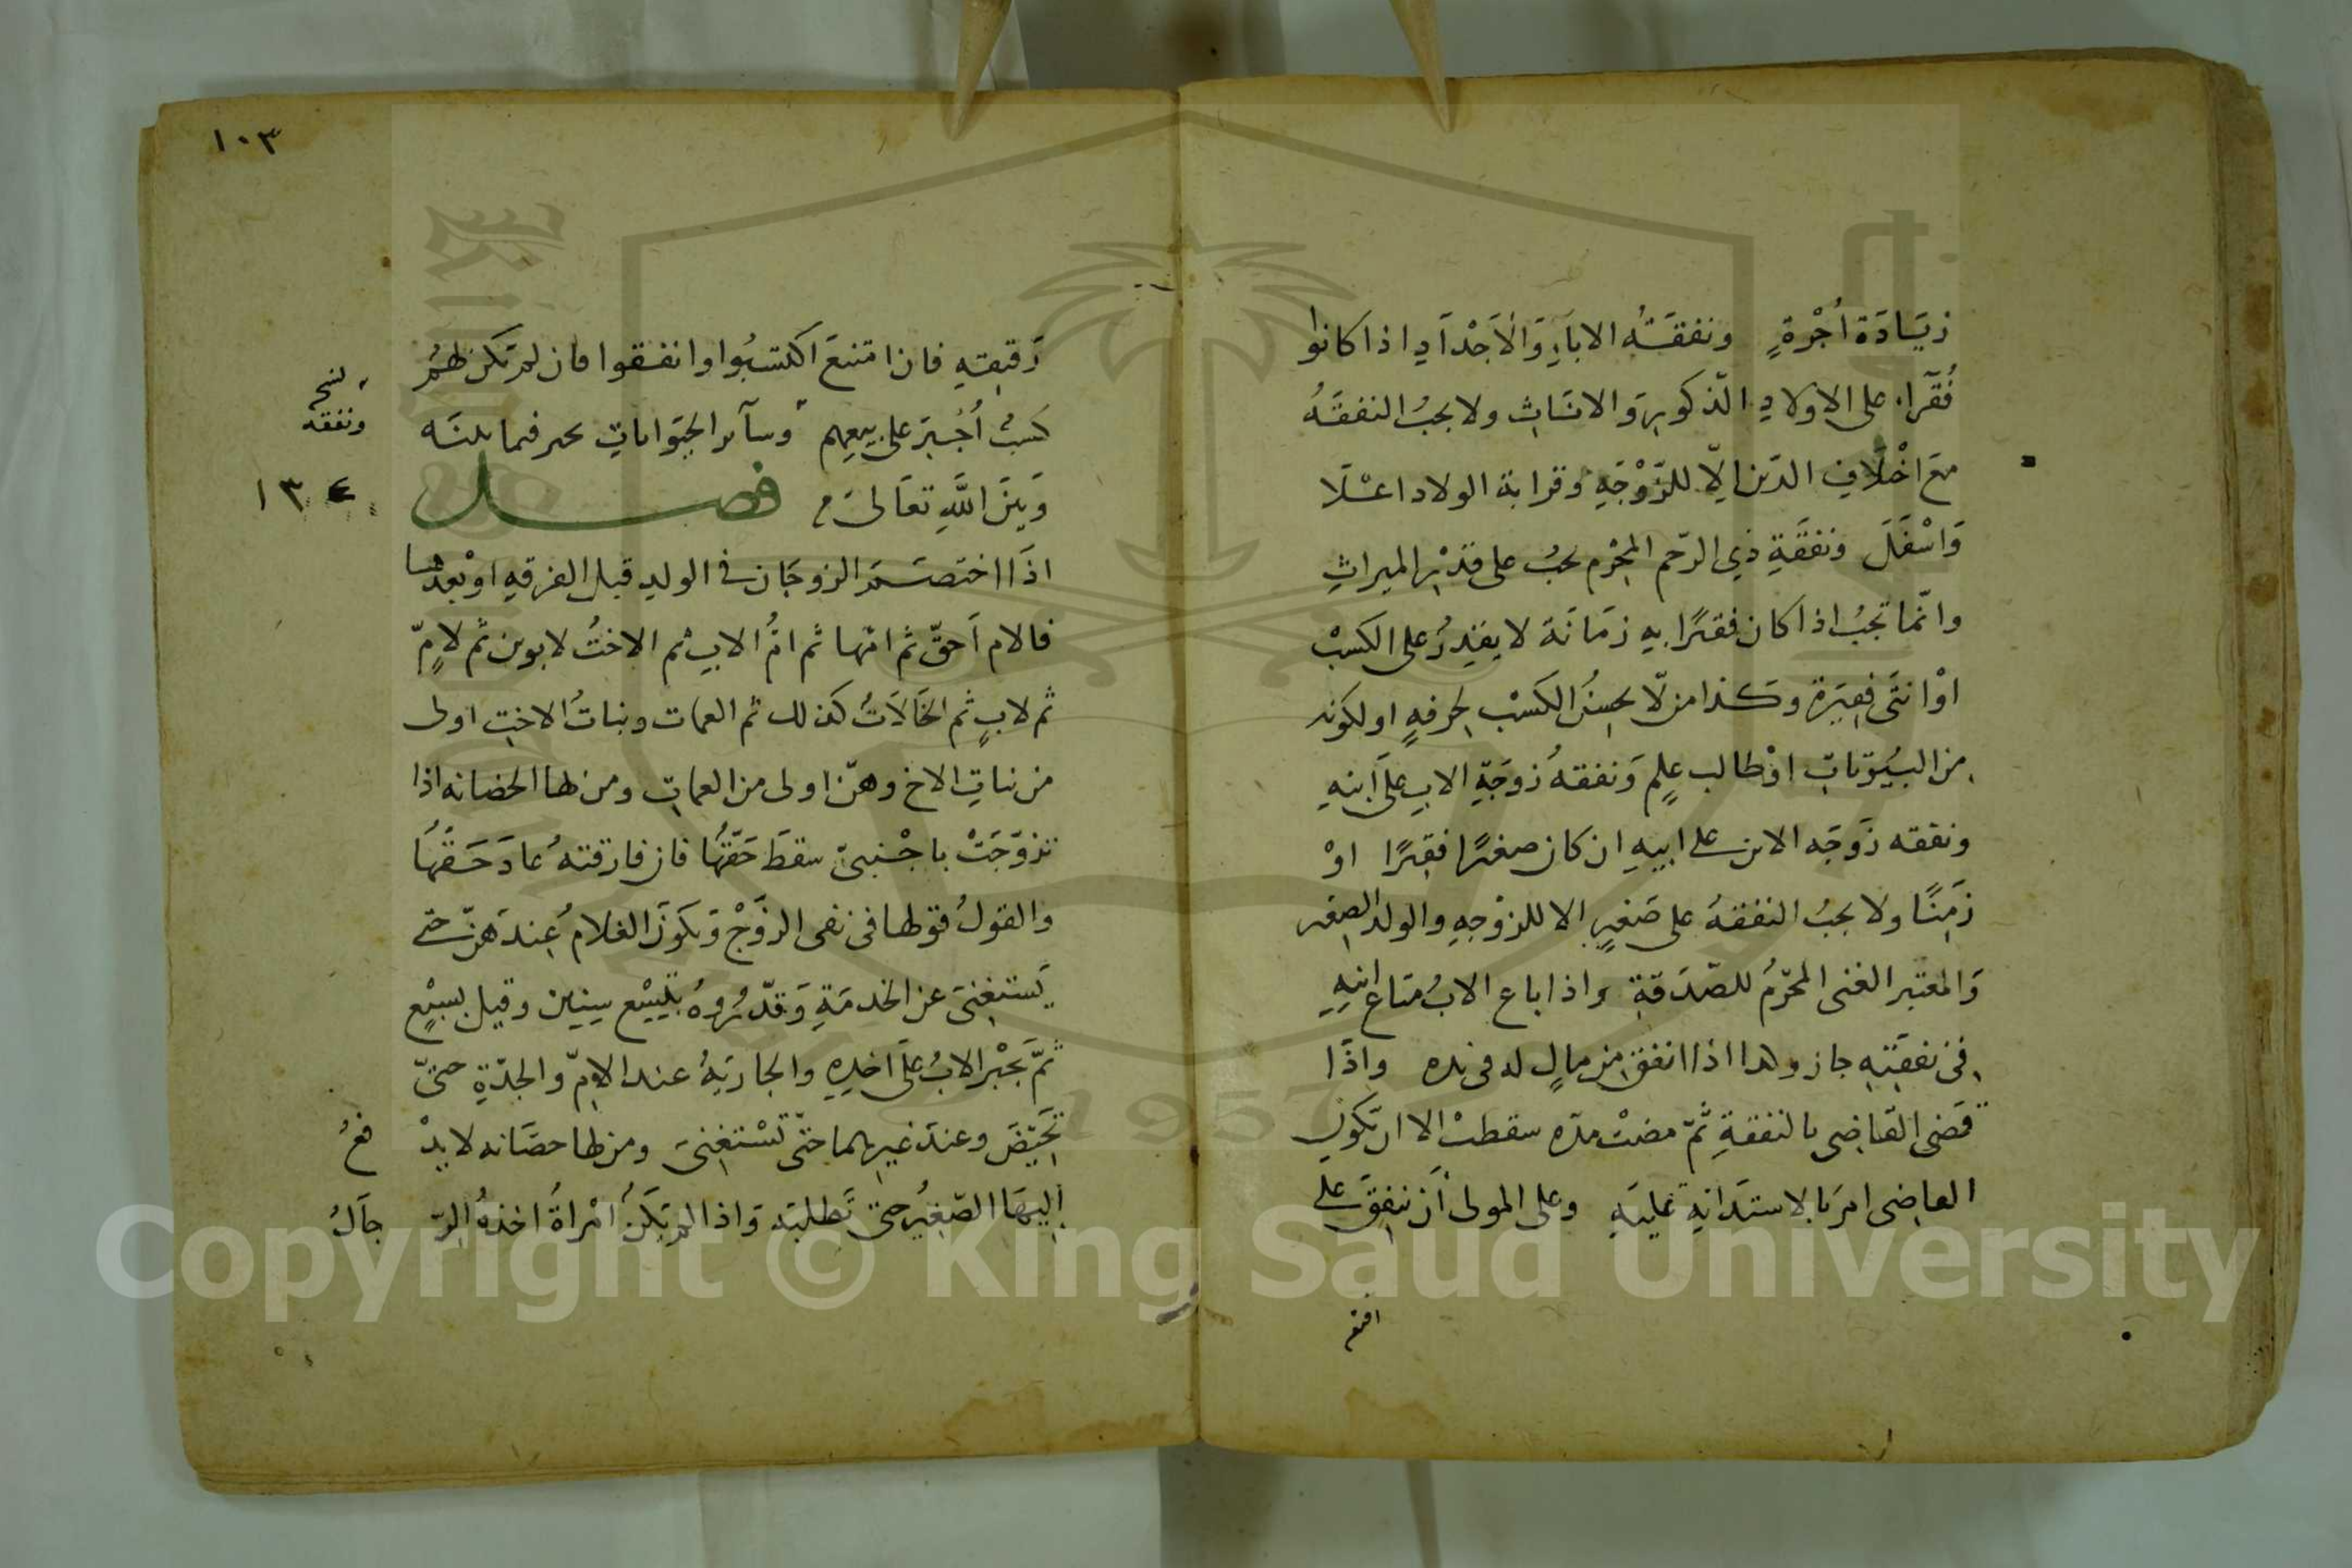 زيَادَة اُجْرةٍ ونفقَتُه الاباَءِ وَالاَجْدَادِ اذا كانوا
فُقَرَاء على الاَولادِ الذكورِ وَالاناثِ ولا يجبُ النفقَهُ
معَ اخْلَافِ الدّين الِّا للزّوْجَةِ وقرابة الولاد اعْلَا
وَاسْفَلَ ونفقَةِ ذي الرّحم المحْرم يجبُ على قدْرِ الميراثِ
وانّما تجبُ اذا كان فقيرًا بهِ زمَانَة لا يقدِرُ على الكسْب
اوْ انثَى فقِيرَة وكذا من لّا يحسِنُ الكَسْب لحرفهٍ او لكونه
من البُيُوتاتِ اوْ طالب علمٍ وَنفقهُ زوجَةِ الابِ علَى ابنهِ
ونفقه زَوجَه الابن على ابيهِ ان كان صغيرًا فقيرًا اوْ
زَمِنًا ولا يجبُ النفقهُ على صَغيرٍ الا للزوْجهِ والولد الصغير
وَالمعتبر الغنى المحرّمُ للصّدَقةِ واذا باع الابُ متاع ابنهِ
في نفقتِهِ جاز وهذا اذا انفق من مالٍ له في يده واذَا
قضى القاضِى بالنفقةِ ثمّ مضتْ مدّه سقطتْ الا ان تكون
القاضِى امرَ بالاستدَانةِ عليهِ وعلى المولى اَن ينفِقَ على
١٠٣
رَقيقِهِ فان امتنعَ اكتسَبُوا وانفقوا فان لم تكن لهُمْ
كسبٌ اُجْبِرَ على بيعِهِم وسائر الحيَواناتِ يجبر فيما بينَه
نسخ
ونفقه
وَبينَ اللّهِ تعَالىَ فصل
١٣٤
اذَا اختصَمَ الزوجَان في الولدِ قبل الفرقهِ اوْ بعدَها
فالام اَحقّ ثم امّها ثم امُّ الابِ ثم الاختُ لابوين ثم لامٍّ
ثم لابٍ ثم الخَالَاتُ كذلك ثم العمات وبناتُ الاختِ اولى
من بناتِ الاخ وهنّ اولى من العماتِ ومن لها الحضانه اذا
تزوّجَتْ باجْنبىّ سقطَ حَقّهَا فان فارقتهُ عادَ حَقّهَا
والقولُ قولها في نفى الزّوْجْ وَيكوُن الغلامُ عِندَهنّ حتى
يَستغِنىَ عن الخدمَةِ وَقدّرُوهُ بتِسْع سِنينِ وقيل بسبْعٍ
ثمَّ يَجْبر الابُ علَى اخذِهِ والجاريَهُ عند الامّ والجدّةِ حتىّ
تحيّضَ وعندَ غيرِهما حتّى تَسْتغِنىَ ومن لها حضَانه لا يدْ فعُ
اِليهَا الصّغِيرُ حتىّ تَطلبَه وَاذا لم يَكنْ امْراَةُ اخذهُ الرّ جَالُ